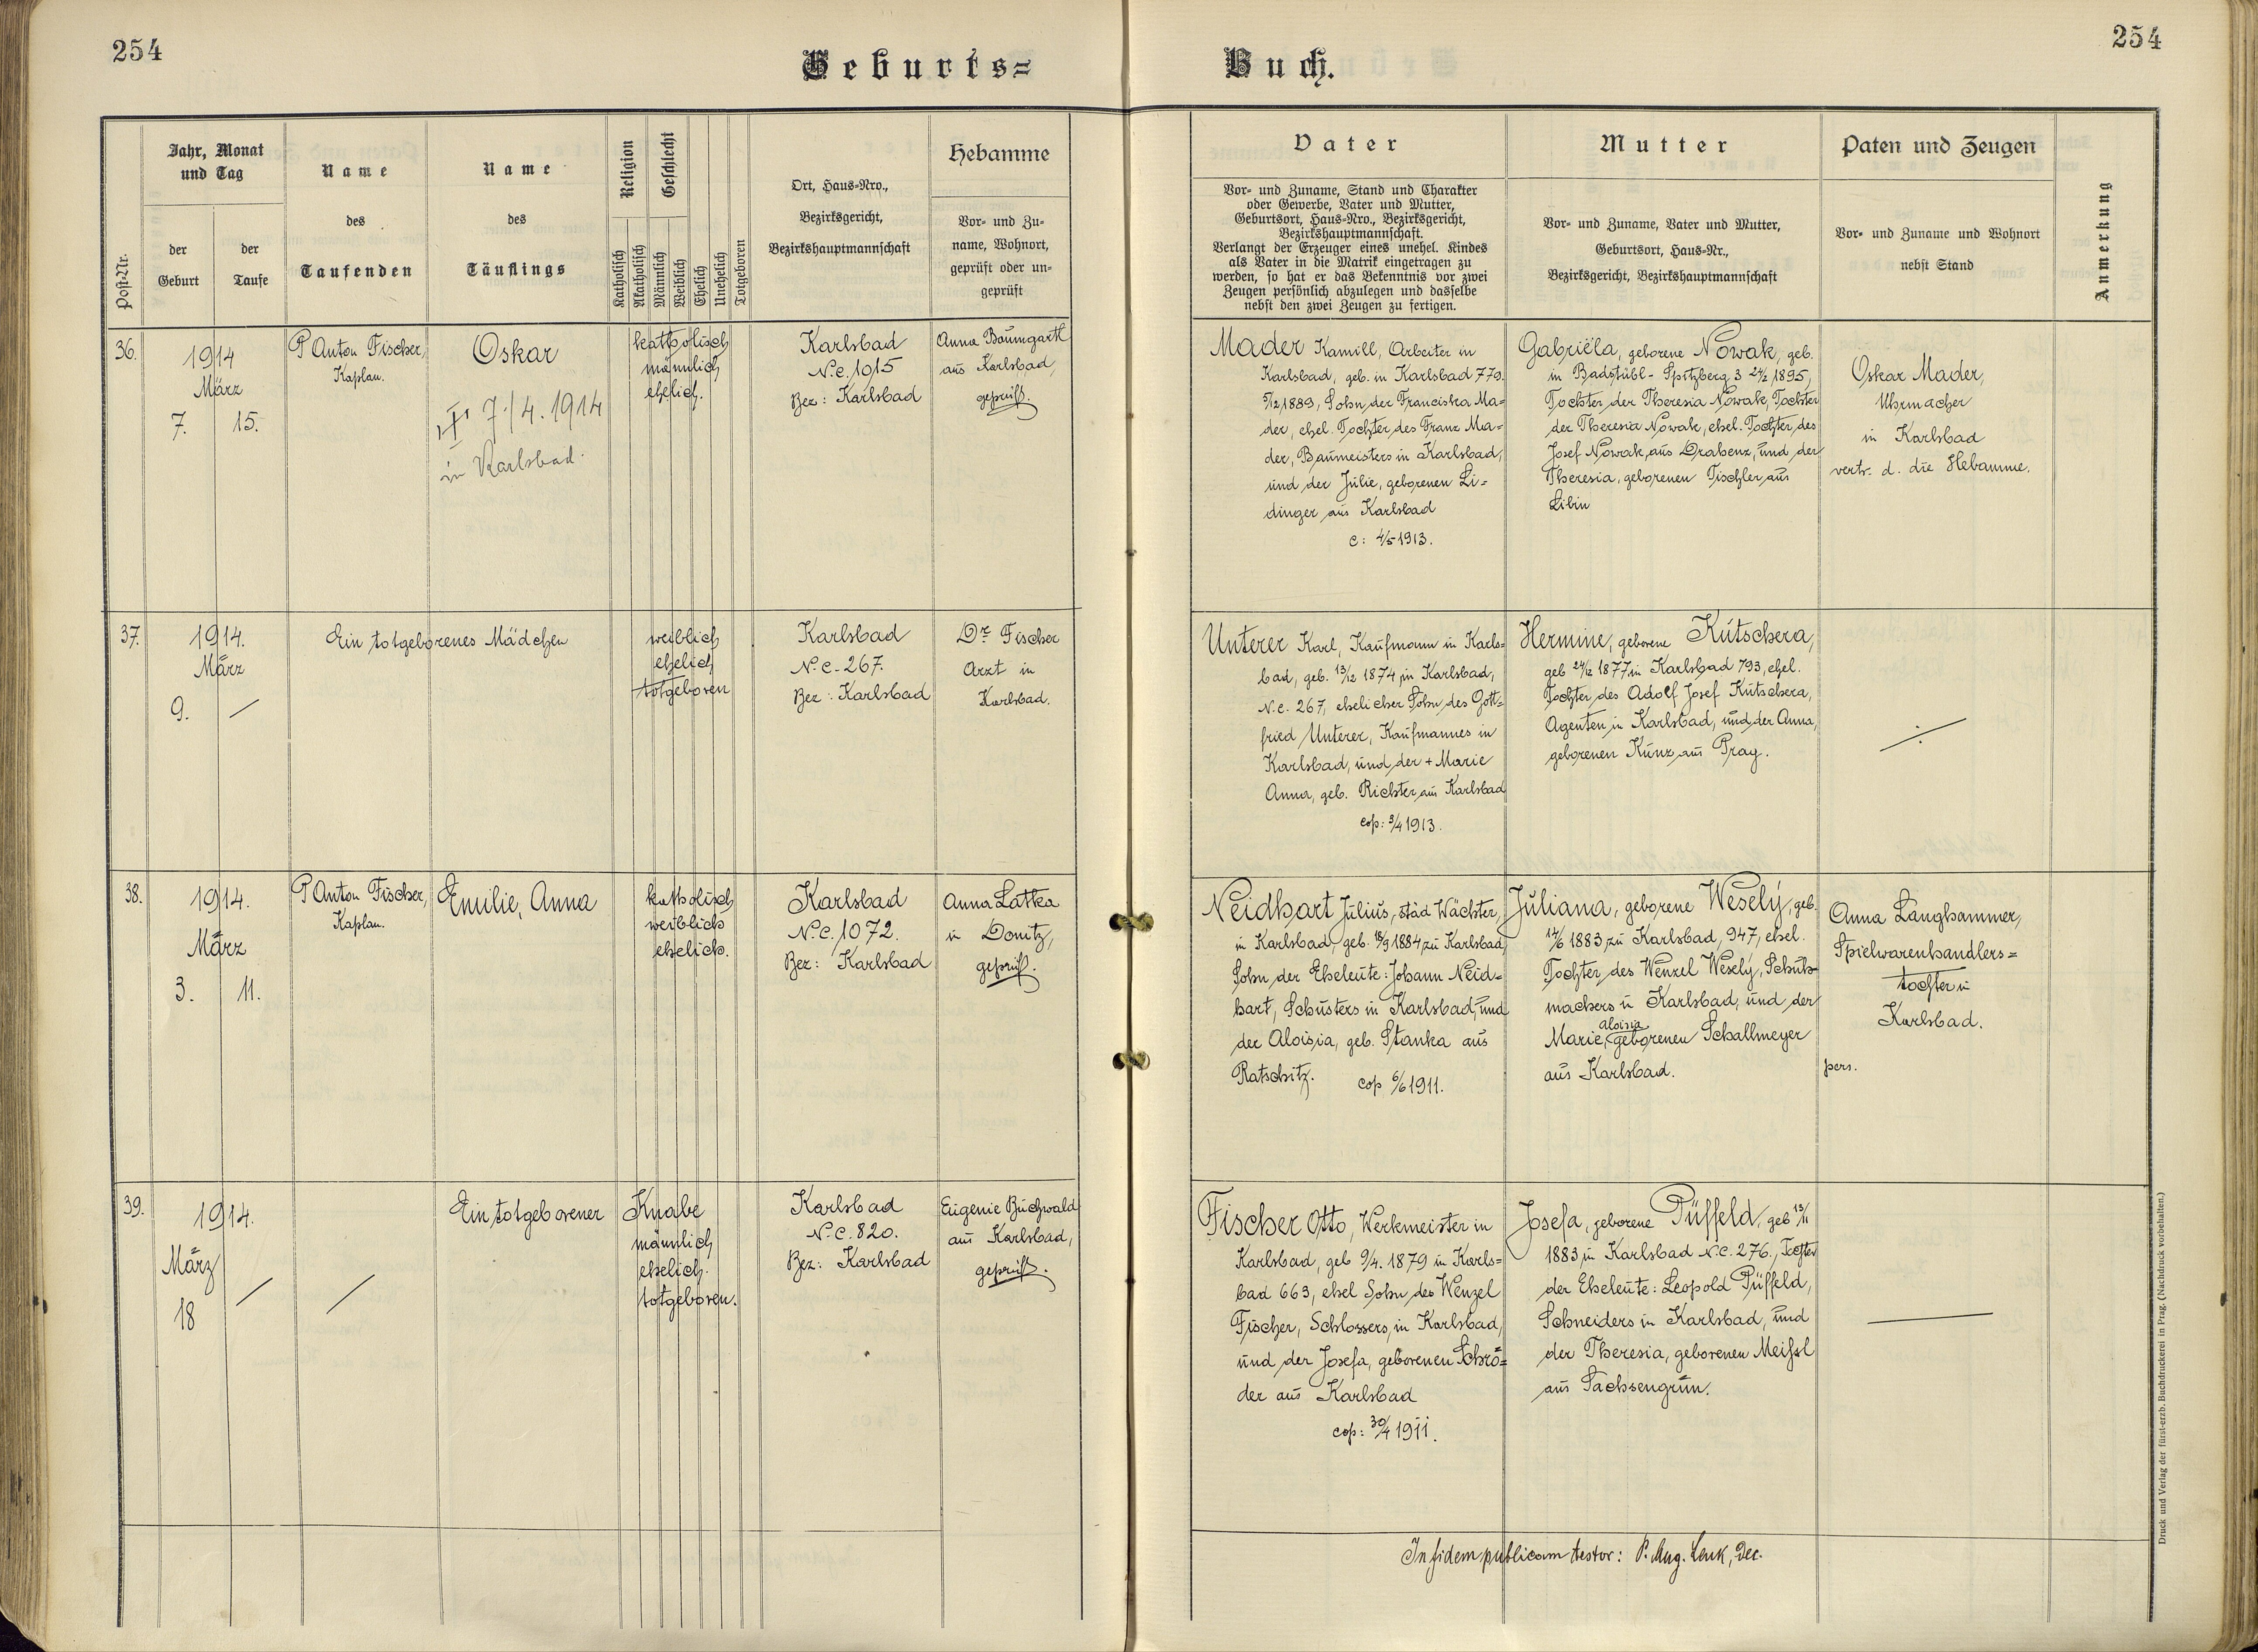 254
Geburts=
Buch.
254
Post-Nr.
Jahr, Monat
und Tag
der
Geburt
der
Taufe
Name
des
Taufenden
Name
des
Täuflings
Religion
Katholisch
Akatholisch
Geschlecht
Männlich
Weiblich
Ehelich
Unehelich
Totgeboren
Ort, Haus-Nro.,
Bezirksgericht,
Bezirkshauptmannschaft
Hebamme
Vor- und Zu-
name, Wohnort,
geprüft oder un-
geprüft
Vater
Vor- und Zuname, Stand und Charakter
oder Gewerbe, Vater und Mutter,
Geburtsort, Haus-Nro., Bezirksgericht,
Bezirkshauptmannschaft.
Verlangt der Erzeuger eines unehel. Kindes
als Vater in die Matrik eingetragen zu
werden, so hat er das Bekenntnis vor zwei
Zeugen persönlich abzulegen und dasselbe
nebst den zwei Zeugen zu fertigen.
Mutter
Vor- und Zuname, Vater und Mutter,
Geburtsort, Haus-Nr.,
Bezirksgericht, Bezirkshauptmannschaft
Paten und Zeugen
Vor- und Zuname und Wohnort
nebst Stand
Anmerkung
36.
1914
März
7. 15.
P Anton Fischer,
Kaplan.
Oskar
7/4. 1914
in Karlsbad.
katholisch
männlich
ehelich.
Karlsbad
N.C. 1015
Bez: Karlsbad
Anna Baumgartl
aus Karlsbad,
geprüft.
Mader Kamill, Arbeiter in
Karlsbad, geb. in Karlsbad 779.
5/12 1889, Sohn der Franciska Ma=
der, ehel. Tochter des Franz Ma=
der, Baumeisters in Karlsbad,
und der Julie, geborenen Li=
dinger aus Karlsbad
c: 4/5 1913.
Gabriela, geborene Nowak, geb.
in Badstübl-Spitzberg 3 24/2 1895,
Tochter der Theresia Nowak, Tochter
der Theresia Nowak, ehel. Tochter des
Josef Nowak, aus Drahenz, und der
Theresia, geborenen Tischler aus
Libin
Oskar Mader,
Uhrmacher
in Karlsbad
vertr. d. die Hebamme.
37.
1914.
März
9. —
Ein totgeborenes Mädchen
weiblich
ehelich
totgeboren
Karlsbad
N.C. 267.
Bez: Karlsbad
Dr. Fischer
Arzt in
Karlsbad.
Unterer Karl, Kaufmann in Karls=
bad, geb. 13/12 1874 in Karlsbad,
N.C. 267, ehelicher Sohn des Gott=
fried Unterer, Kaufmannes in
Karlsbad, und der + Marie
Anna, geb. Richter aus Karlsbad
cop: 3/4 1913.
Hermine, geborene Kutschera,
geb 24/12 1877 in Karlsbad 793, ehel.
Tochter des Adolf Josef Kutschera,
Agenten in Karlsbad, und der Anna,
geborenen Kunz aus Prag.
38.
1914.
März
3. 11.
P Anton Fischer,
Kaplan.
Emilie, Anna
katholisch
weiblich
ehelich.
Karlsbad
N.C. 1072.
Bez: Karlsbad
Anna Latka
in Donitz,
geprüft.
Neidhart Julius, städ Wächter,
in Karlsbad, geb. 18/9 1884 zu Karlsbad,
Sohn der Eheleute: Johann Neid=
hart, Schusters in Karlsbad, und
der Aloisia, geb. Stanka aus
Ratschitz. cop 6/6 1911.
Juliana, geborene Wesely, geb.
14/6 1883 zu Karlsbad, 947, ehel.
Tochter des Wenzel Wesely, Schuh-
machers in Karlsbad, und der
Marie, Aloisia geborenen Schallmeyer
aus Karlsbad.
Anna Langhammer,
Spielwarenhandlers=
tochter in
Karlsbad.
pers.
39.
1914.
März
18
Ein totgeborener Knabe
männlich
ehelich.
totgeboren.
Karlsbad
N.C. 820.
Bez: Karlsbad
Eugenie Buchwald
aus Karlsbad,
geprüft.
Fischer Otto, Werkmeister in
Karlsbad, geb 9/4. 1879 in Karls=
bad 663, ehel Sohn des Wenzel
Fischer, Schlossers, in Karlsbad,
und der Josefa, geborenen Schrö=
der aus Karlsbad
cop: 30/4 1911.
Josefa, geborene Püffeld, geb 13/11
1883 in Karlsbad N.C. 276., Tochter
der Eheleute: Leopold Püffeld,
Schneiders in Karlsbad, und
der Theresia, geborenen Meißl
aus Sachsengrün.
In fidem publicam testor: P. Aug. Lenk, Dec.
Druck und Verlag der fürst-erzb. Buchdruckerei in Prag. (Nachdruck vorbehalten.)